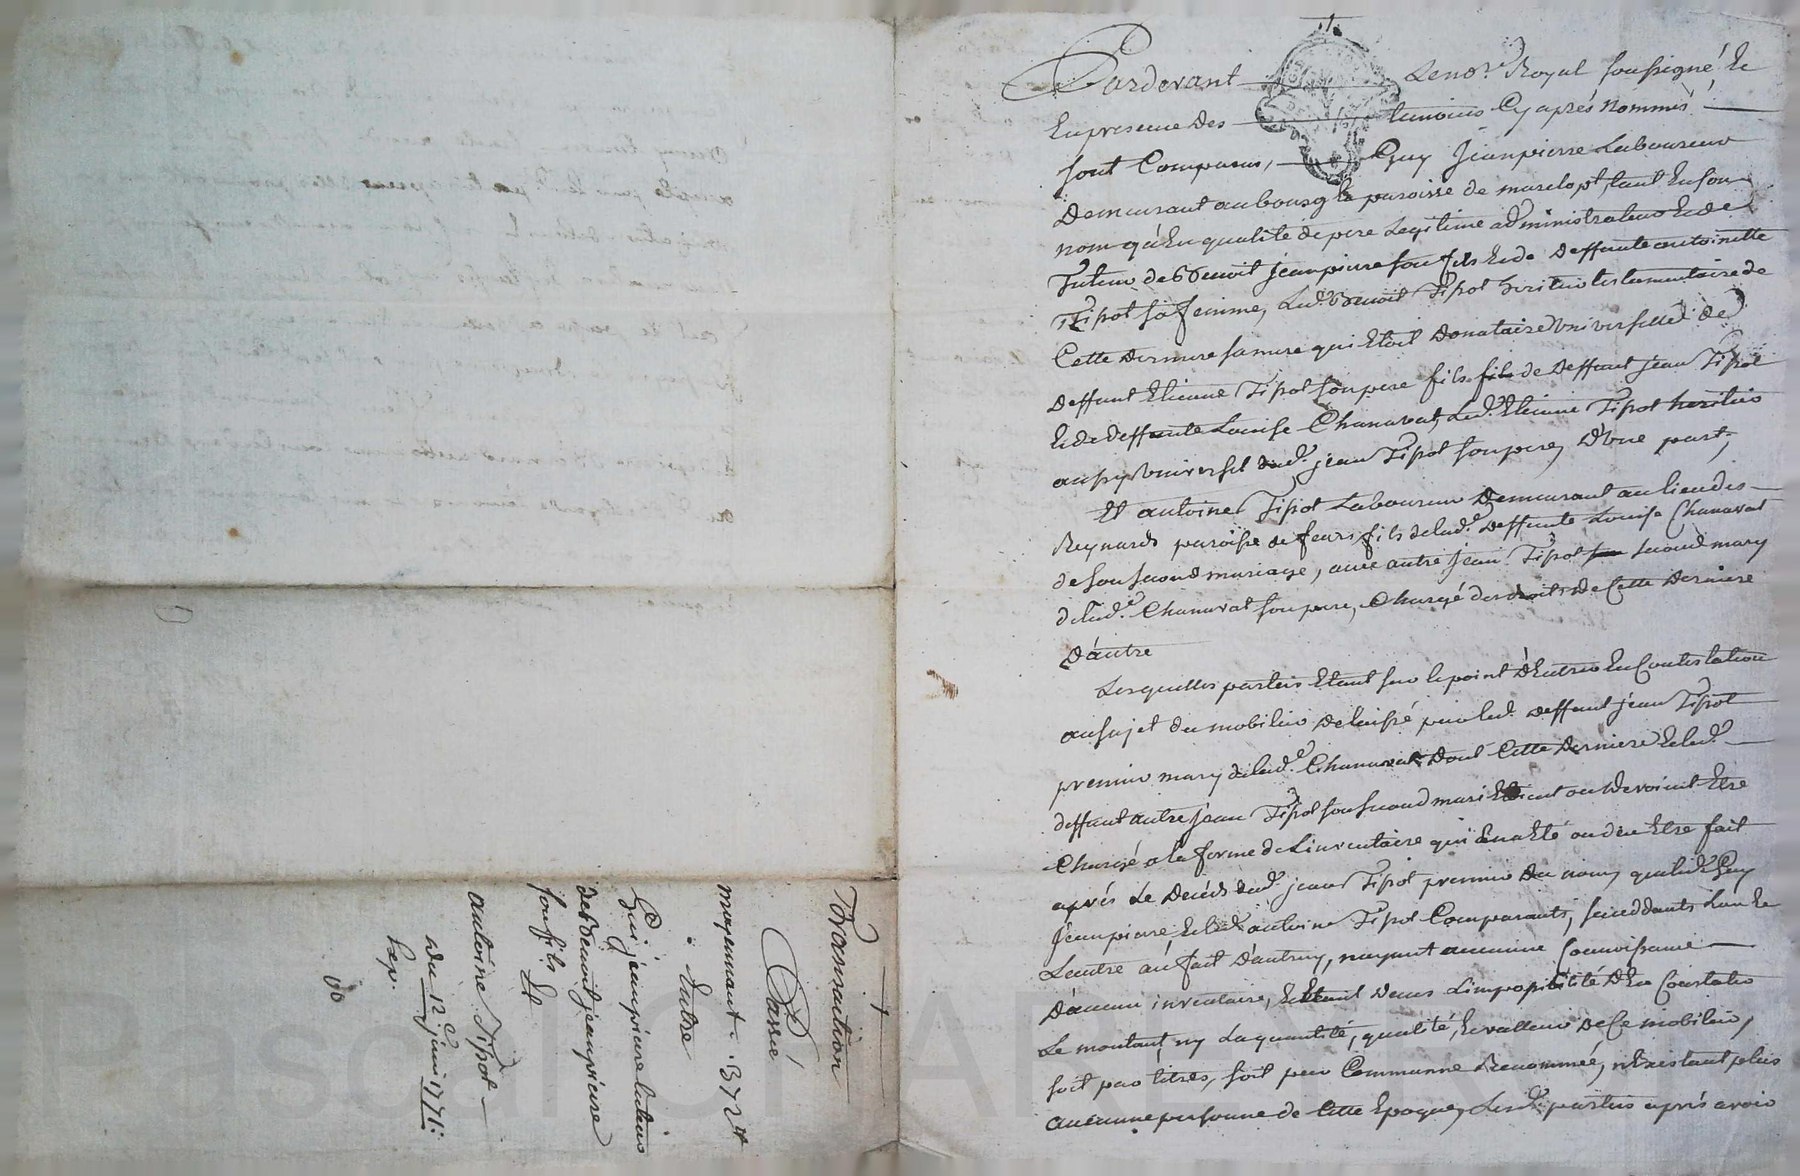 Transaction
Passé
moyennant . 372 tt
Entre
Gui jeanpierre tuteur
de Benoit jeanpierre
son fils Et
antoine Tipot
du 12e juin 1771:
Exp.
Pardevant Le nore. Royal soussigné, Et
En presence des temoins Cy aprés Nommés
sont Comparus, Guy Jeanpierre Laboureur
Demeurant au bourg & paroisse de marclopt, tant En son
nom qu'En qualité de pere Legitime administrateur Et de
Tuteur de Benoit Jeanpierre son fils Et de Deffunte antoinette
Tipot sa femme, Led. Benoit Tipot heritier testamentaire de
Cette Derniere sa mere qui Etoit Donataire Universelle de
deffunt Etienne Tipot son pere fils de Deffunt jean Tipot
Et de deffunte Louise Chanavat, Led. Etienne Tipot heritier
aussy Universel dud. jean Tipot son pere, D'Une part,
Et antoine Tipot Laboureur Demeurant au lieu des
Reynards paroisse de feurs fils de lad.e Deffunte Louise Chanavat
de son second mariage, avec autre jean Tipot second mary
de lad.e Chanavat son pere, Chargé des droits de Cette Derniere
D'autre
Lesquelles parties Etant sur le point D'Entrer En Contestation
au sujet du mobilier Delaissé par led. deffunt jean Tipot
premier mary de lad.e Chanavat, Dont Cette Derniere Et led.
deffunt autre jean Tipot son second mari Etoient ou Devoient Etre
Chargé a la forme de L'inventaire qui En a Eté ou du Etre fait
aprés Le Decés dud. jean Tipot premier Du nom, que led. Guy
Jeanpierre, Et led. antoine Tipot Comparants, succeddants L'un Et
L'autre au fait D'autruy, n'ayant aucune Connoissance
D'aucun inventaire, Et Etant Dans L'impossibilité D'En Constater
Le montant, ny La quantité, qualité, Et valleur De Ce mobilier,
soit par titres, soit par Commune Renommée, n'Existant plus
aucune personne de Cette Epoque, Lesd. parties aprés avoir